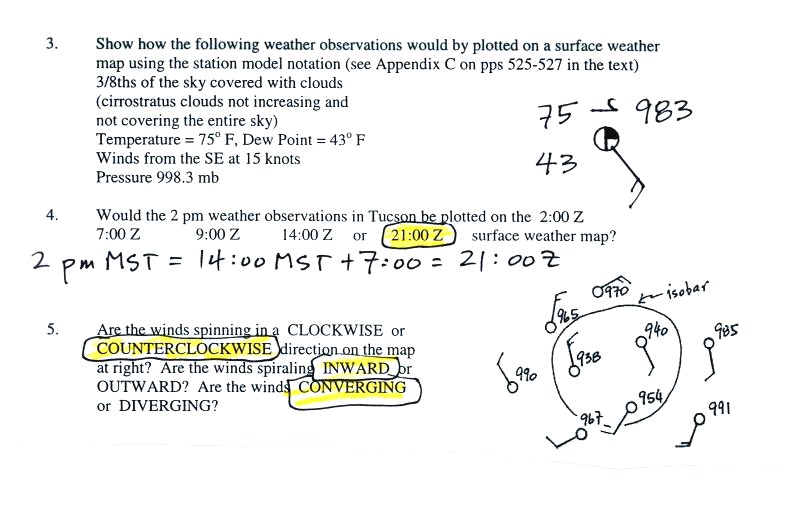 3. Show how the following weather observations would by plotted on a surface weather
map using the station model notation (see Appendix C on pps 525-527 in the text)
3/8ths of the sky covered with clouds
(cirrostratus clouds not increasing and
not covering the entire sky)
Temperature = 75° F, Dew Point = 43° F
Winds from the SE at 15 knots
Pressure 998.3 mb
75 983
43
4. Would the 2 pm weather observations in Tucson be plotted on the 2:00 Z
7:00 Z 9:00 Z 14:00 Z or 21:00 Z surface weather map?
2 pm MST = 14:00 MST + 7:00 = 21:00 Z
5. Are the winds spinning in a CLOCKWISE or
COUNTERCLOCKWISE direction on the map
at right? Are the winds spiraling INWARD or
OUTWARD? Are the winds CONVERGING
or DIVERGING?
970 isobar
965
940 985
938
990
954
991
967